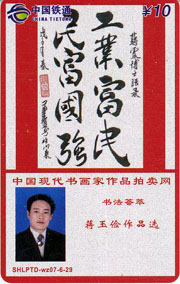 中国铁通
CHINA TIETONG
¥10
工業富民
民富國強
中国现代书画家作品拍卖网
书法荟萃
蒋玉俭作品选
SHLPTD-wz07-6-29